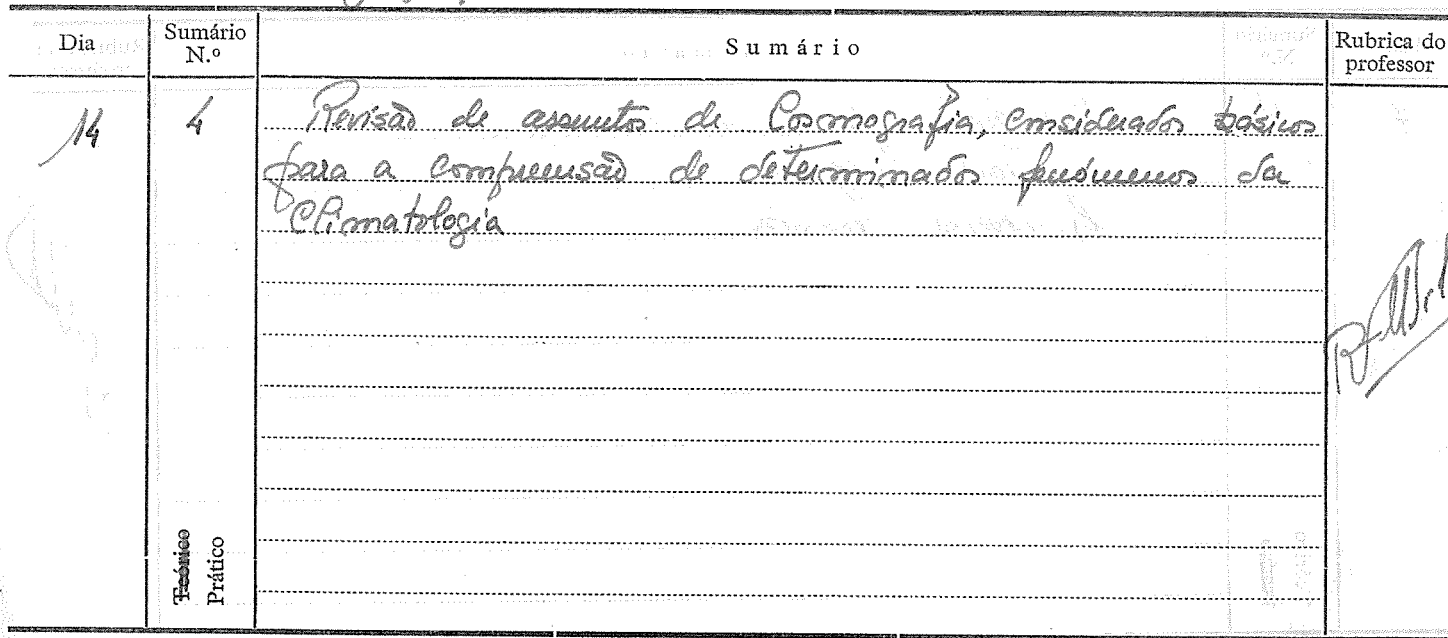 Dia Sumário N.º Sumário Rubrica do professor
14 4 Revisão de assuntos de Cosmografia, considerados básicos
para a compreensão de determinados fenómenos da
Climatologia
Teórico
Prático